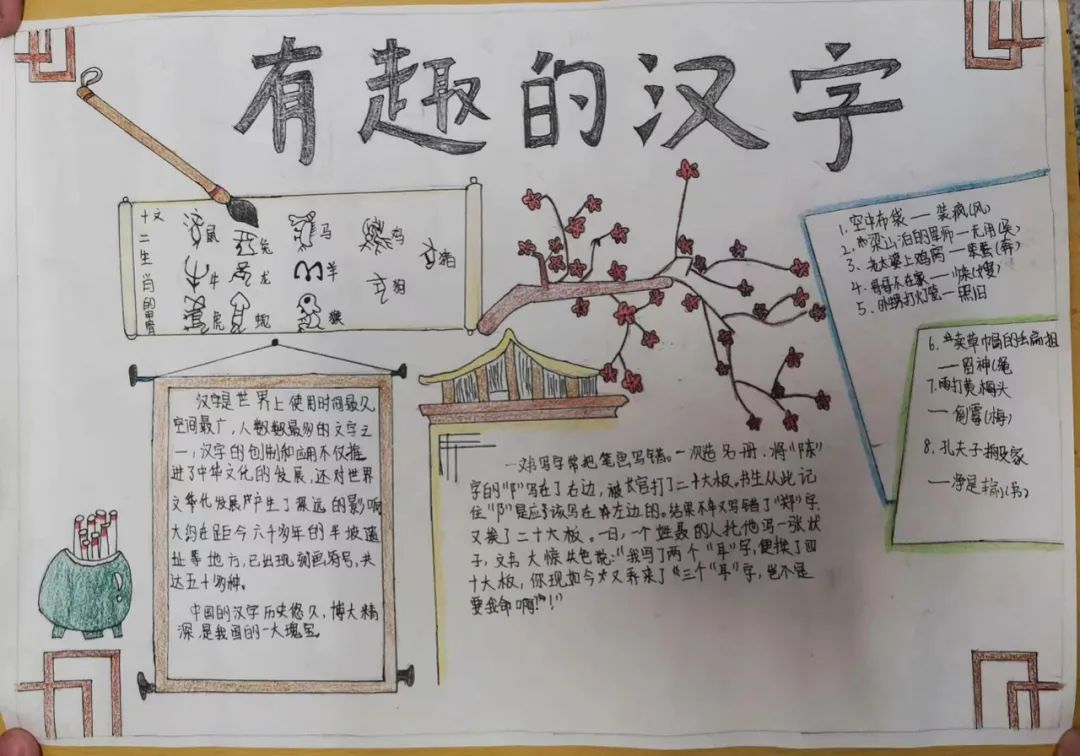 有趣的汉字
十二生肖的甲骨文
鼠
兔
马
鸡
猪
牛
龙
羊
狗
虎
蛇
猴
汉字是世界上使用时间最久
空间最广，人数最多的文字之
一，汉字的创制和应用不仅推
进了中华文化的发展，还对世界
文化发展产生了深远的影响
大约在距今六千多年的半坡遗
址等地方，已出现刻画符号，共
达五十多种。
中国的汉字历史悠久，博大精
深，是我国的一大瑰宝。
写字常把笔画写错。一次造名册，将“陈”
字的“阝”写在了右边，被长官打了二十大板。书生从此记
住“阝”是应该写在左边的。结果不又写错了“郑”字
又挨了二十大板。一日，一个姓聂的人托他写一张状
子，文书大惊失色说：“我写了两个“耳”字，便挨了四
十大板，你现如今又弄来了“三个“耳”字，岂不是
要我命啊！”
1. 空中布袋——装疯(风)
2. 梁山泊的军师—无用(吴)
3. 老太婆上鸡窝—笨蛋(奔)
4. 哥哥不在家—(嫂)
5. 外甥打灯笼—照旧
6. 卖草帽的扁担
——留神(绳
7. 雨打黄梅头
— 倒霉(梅)
8. 孔夫子搬家
—净是输(书)